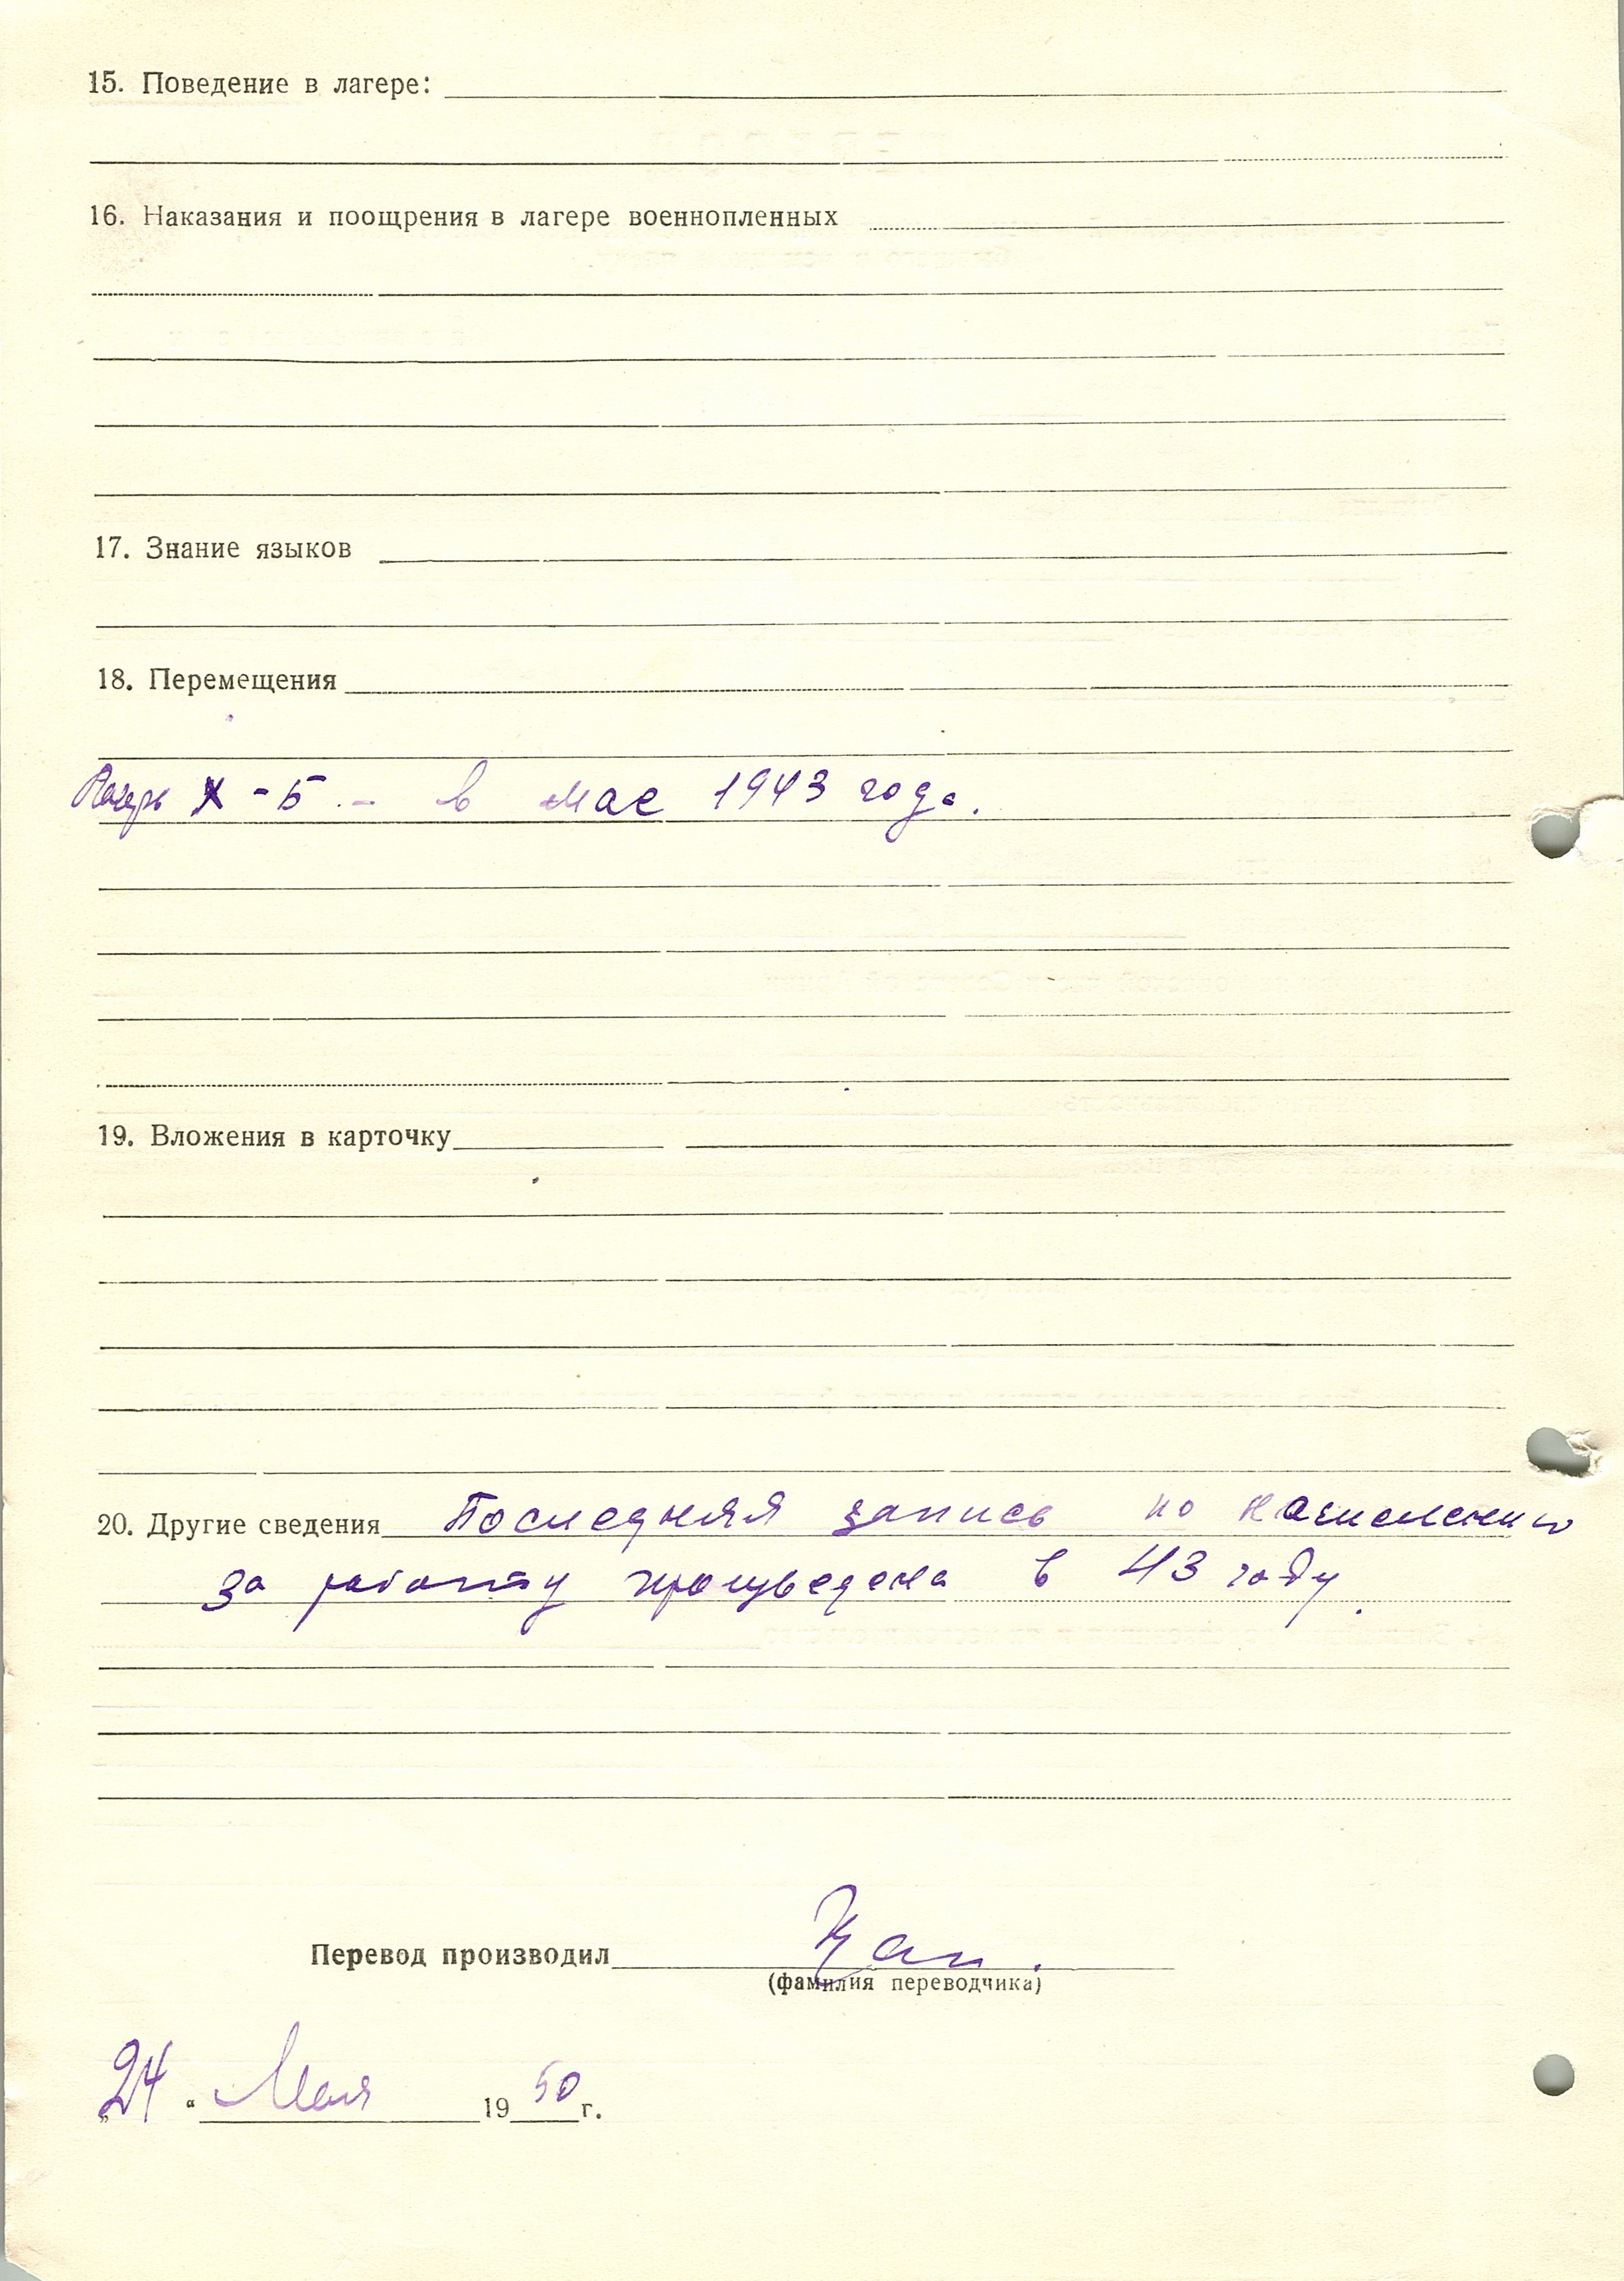 15. Поведение в лагере:
16. Наказания и поощрения в лагере военнопленных
17. Знание языков
18. Перемещения
Лагерь X - Б. - в мае 1943 года.
19. Вложения в карточку
20. Другие сведения Последняя запись по начислению
за работу произведена в 43 году.
Перевод производил
(фамилия переводчика)
„24“ Мая 1950 г.